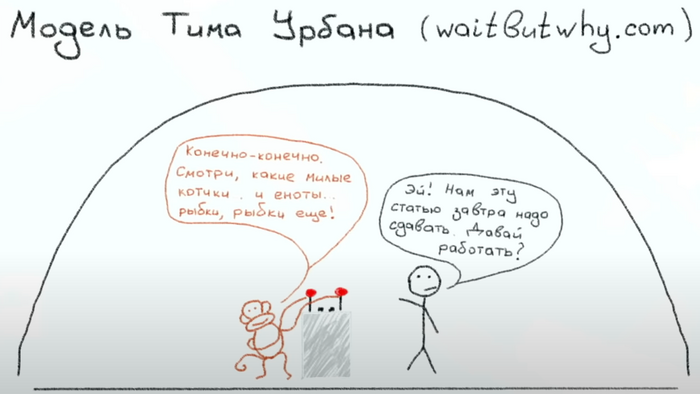 Модель Тима Урбана (waitbutwhy.com)
Конечно-конечно.
Смотри, какие милые
котики . и еноты..
рыбки, рыбки еще!
Эй! Нам эту
статью завтра надо
сдавать. Давай
работать?